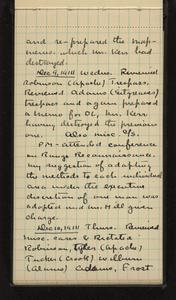 and re-prepared the map-
nemo. which Mr. Kerr had
destroyed.
Dec. 9, 1911 Wednes. Reviewed
Robinson (Apache) Trespass.
Reviewed Adams (Sitgreaves)
trespass and again prepared
a memo for OL, Mr. Kerr
having destroyed the previous
one. Also misc o/s.
P.M.- attended conference
on Range Reconnaissance.
My suggestion of adapting
the methods to each individual
area under the executive
discretion of one man was
adopted and Mr. Hill given
charge.
Dec 10, 1911 Thurs. Reviewed
misc. cases & Rectate
Robinson, Tyler (Apache)
Tucker (Crook) William
(Alamo) Adams, Frost